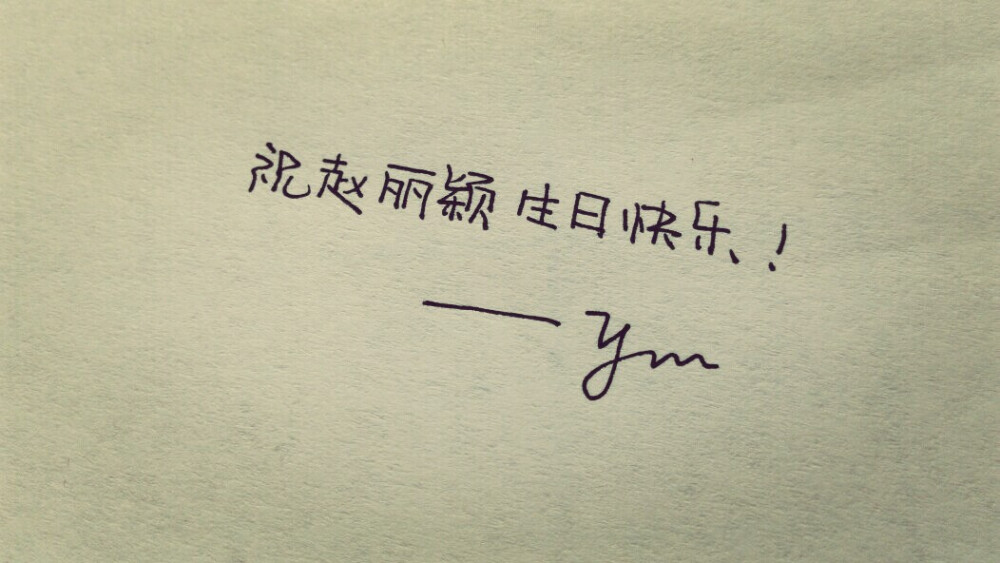 祝赵丽颖生日快乐！
——Ym